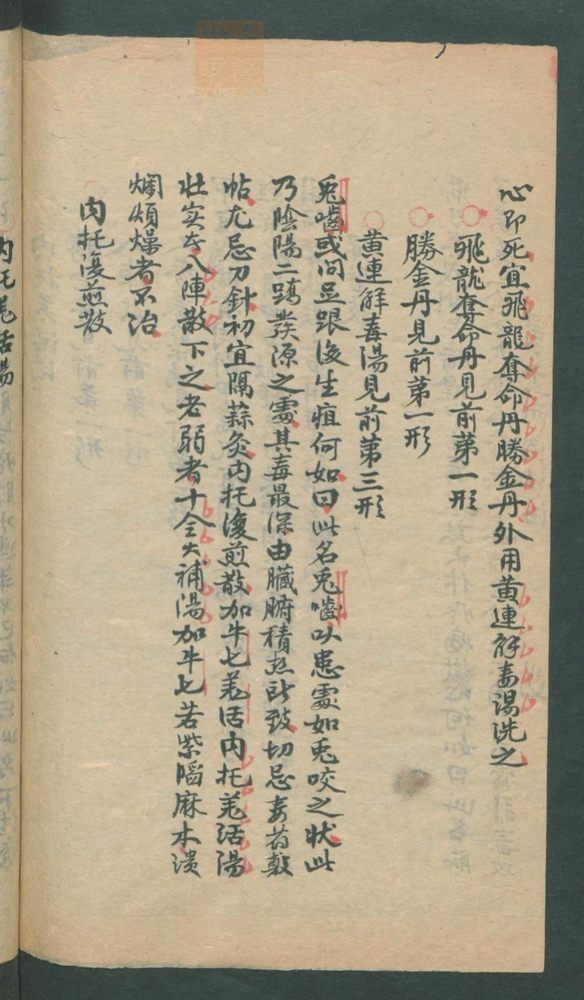 心即死宜飛龍奪命丹勝金丹外用黄連解毒湯洗之
飛龍奪命丹見前第一形
勝金丹見前第一形
黄連解毒湯見前第三形
兎嚙或問足跟後生疽何如曰此名兎嚙以患處如兎咬之狀此
乃陰陽二蹻發源之處其毒最深由臟腑積热所致切忌毒药敷
帖尤忌刀針初宜隔蒜灸内托復煎散加牛七羌活内托羌活湯
壮实者八陣散下之老弱者十全大補湯加牛七若紫瘤麻木潰
爛煩燥者不治
内托復煎散
内托羌活湯